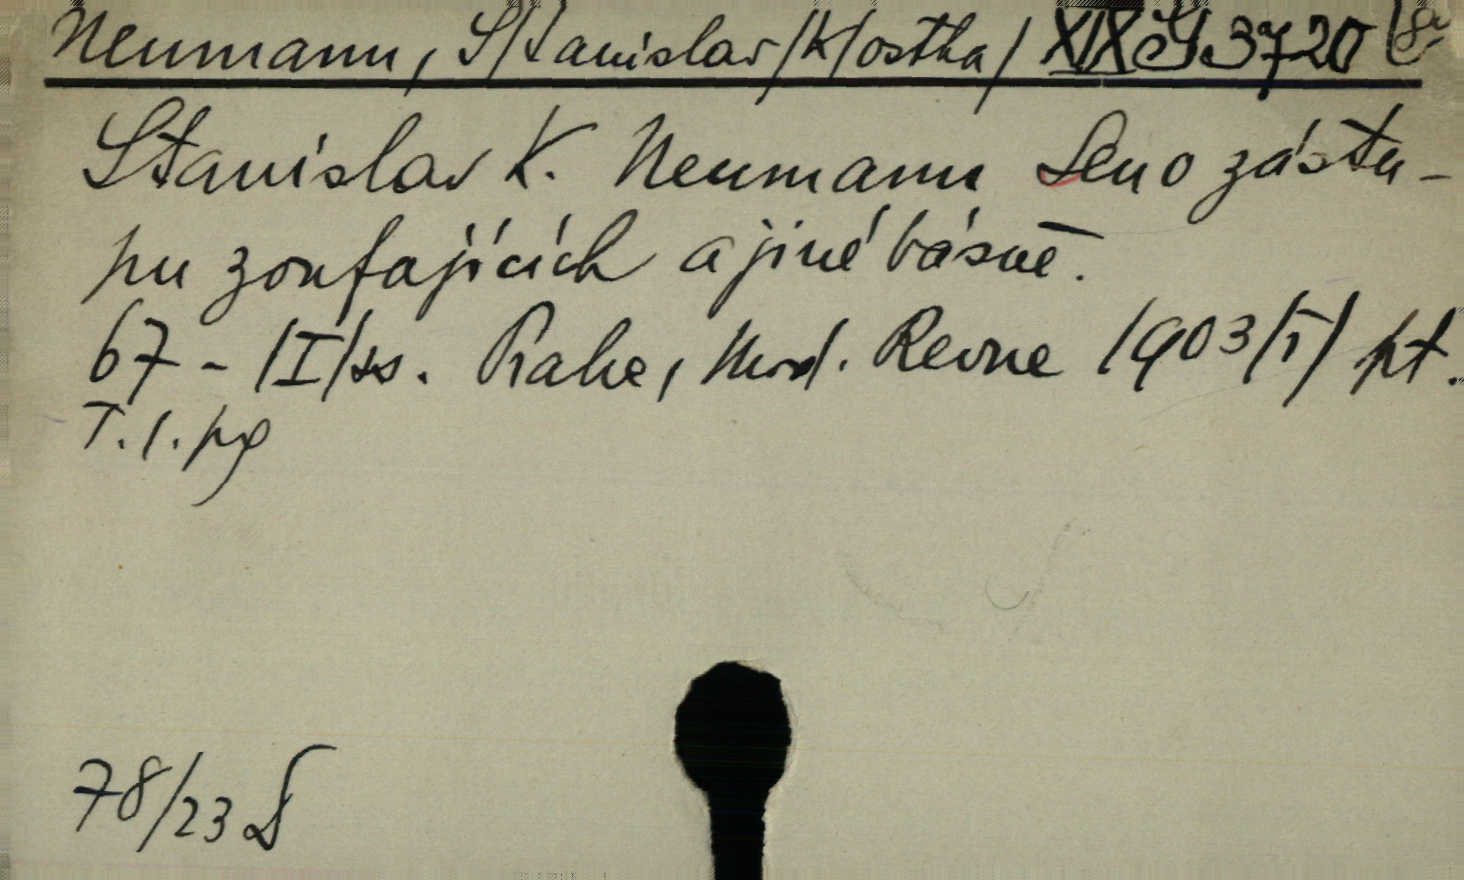 Neumann, S/tanislav/K/ostka/ XIX J 3720
Stanislav K. Neumann Sen o zástu-
pu zoufajících a jiné básně.
67 - /I/ ss. Praha, Mod. Revue 1903/T/ pt.
T. 1. pg
78/23 D